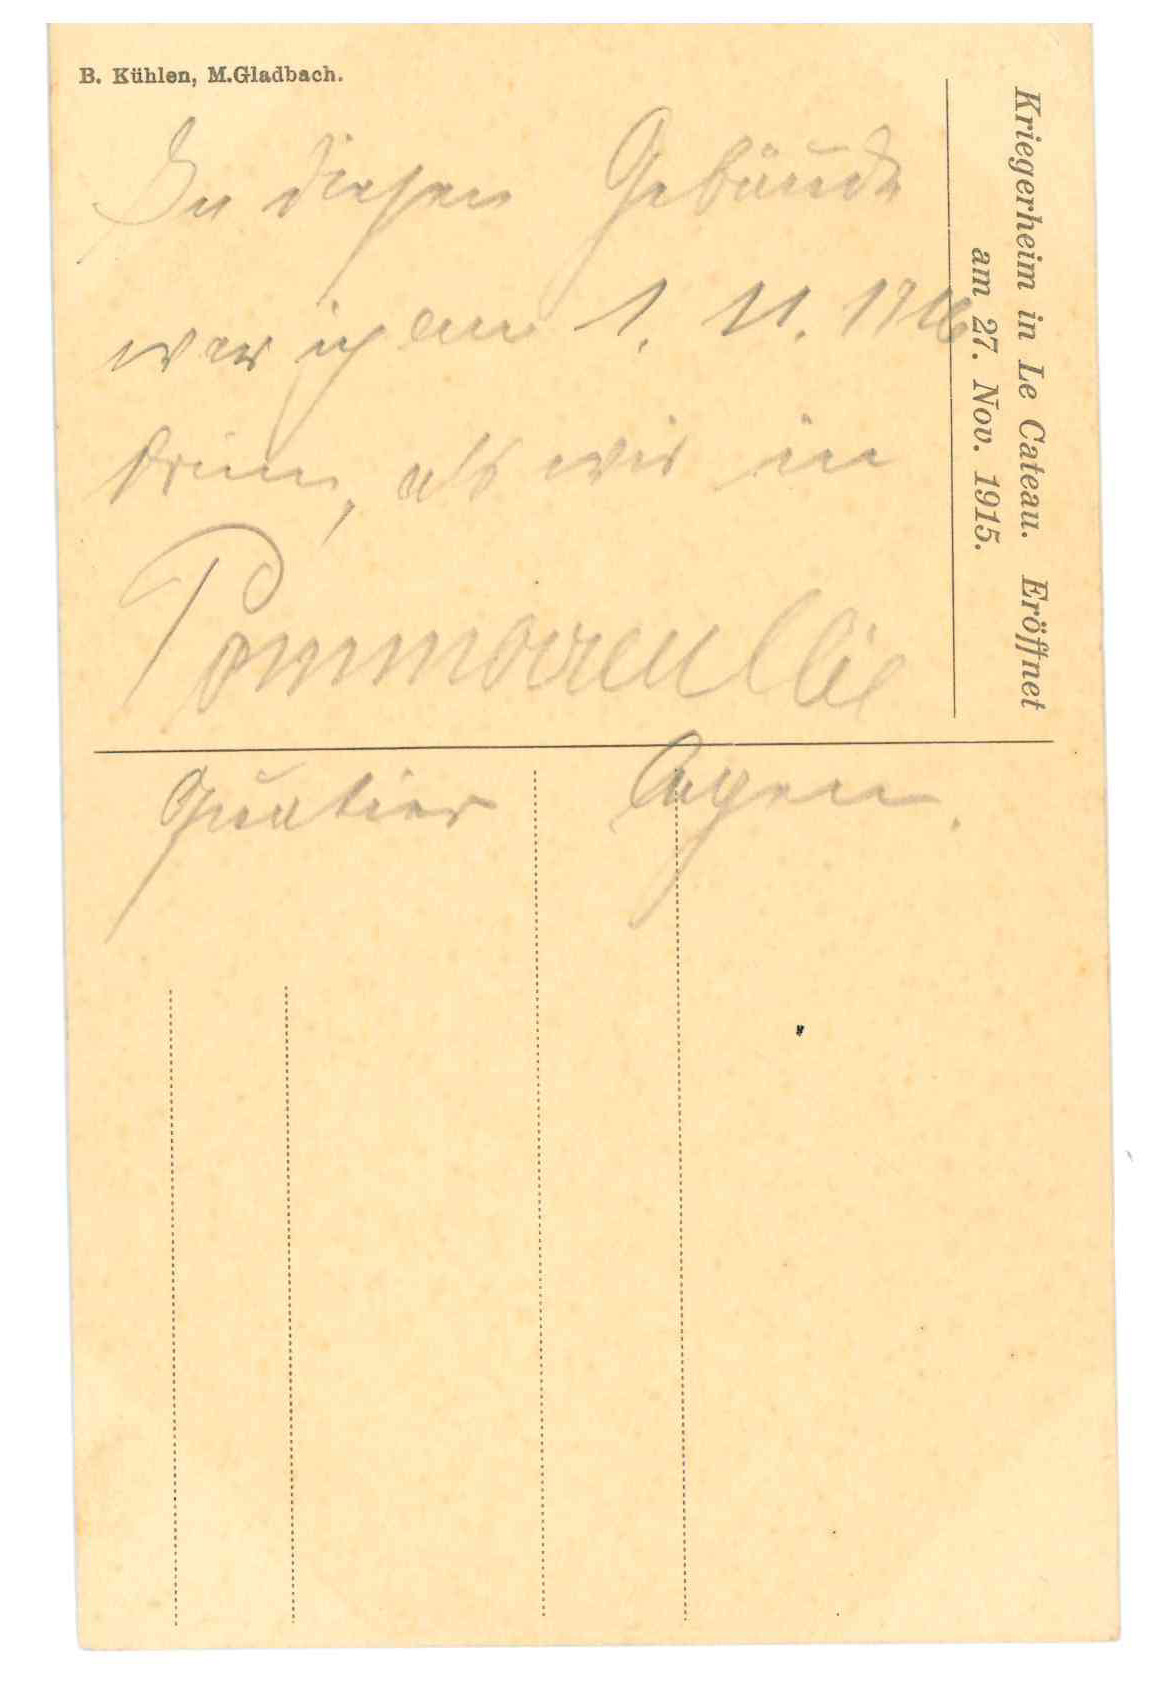 B. Kühlen, M.Gladbach.
Kriegerheim in Le Cateau. Eröffnet
am 27. Nov. 1915.
In diesen Gebäude
war ich am 1. 11. 1916
drin, als wir in
Quatier lagen.